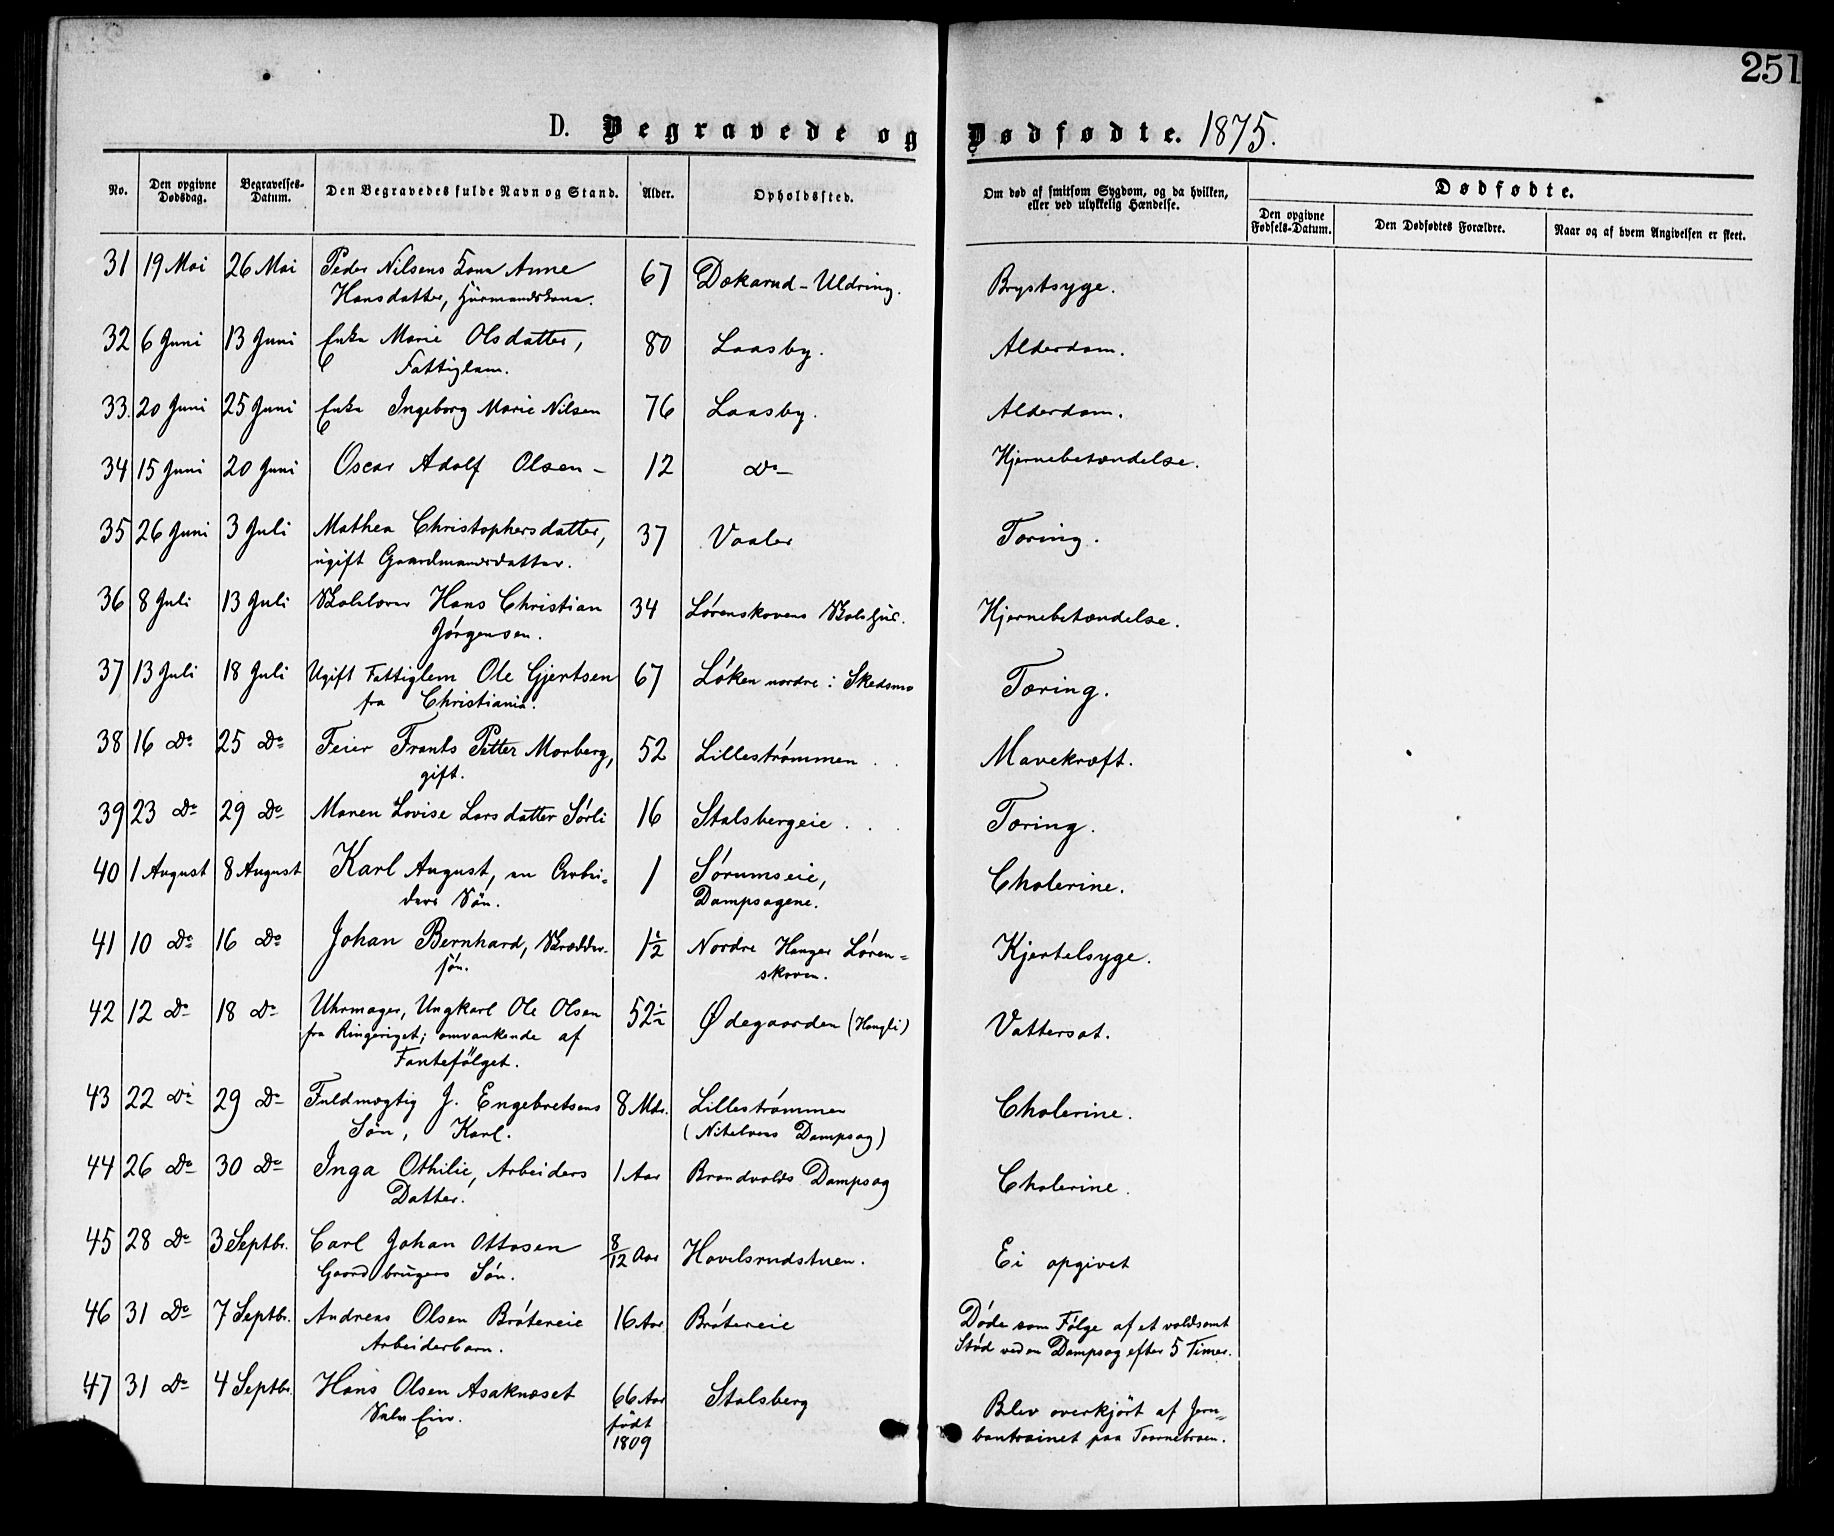 251
D. Begravede og Dødfødte. 1875.
No. | Den opgivne Dødsdag. | Begravelses-Datum. | Den Begravedes fulde Navn og Stand. | Alder. | Opholdssted. | Om død af smitsom Sygdom, og da hvilken, eller ved ulykkelig Hændelse. | Dødfødte.
Den opgivne Fødsels-Datum. | Den Dødfødtes Forældre. | Naar og af hvem Angivelsen er skeet.
31 | 19 Mai | 26 Mai | Peder Nilsens Kone Anne | 67 | Døkarud-Uldring. | Brystsyge.
Hansdatter, Huusmandskone.
32 | 6 Juni | 13 Juni | Enke Marie Olsdatter, | 80 | Laasby. | Alderdom.
Fattiglem.
33. | 20 Juni | 25 Juni | Enke Ingeborg Marie Nilsen | 76 | Laasby. | Alderdom.
34 | 15 Juni | 20 Juni | Oscar Adolf Olsen - | 12 | Do | Hjernebetændelse.
35 | 26 Juni | 3 Juli | Mathea Christophersdatter, | 37 | Vaaler | Tæring.
ugift Gaardmandsdatter.
36 | 8 Juli | 13 Juli | Skolelærer Hans Christian | 34 | Lørenskovens Skolehus. | Hjernebetændelse.
Jørgensen.
37 | 13 Juli | 18 Juli | Ugift Fattiglem Ole Gjertsen | 67 | Løken nordre i Skedsmo | Tæring.
fra Christiania.
38 | 16 Do | 25 Do | Feier Frants Petter Morberg, | 52 | Lillestrømmen | Mavekræft.
gift.
39 | 23 Do | 29 Do | Maren Lovise Larsdatter Sørli | 16 | Stalsbergeie | Tæring.
40 | 1 August | 8 August | Karl August, en Arbei- | 1 | Sørumseie, | Cholerine.
ders Søn. | Dampsagene.
41 | 10 Do | 16 Do | Johan Bernhard, Skrædder- | 1½ | Nordre Hauger Løren- | Kjertelsyge.
søn. | skoven.
42 | 12 Do | 18 Do | Uhrmager, Ungkarl Ole Olsen | 52½ | Ødegaarden (Haugli) | Vattersot.
fra Ringeriget; omvankende af
Fantefølget.
43 | 22 Do | 29 Do | Fuldmægtig J. Engebretsens | 8 Mdr. | Lillestrømmen | Cholerine.
Søn, Karl. | (Nitelvens Dampsag)
44 | 26 Do | 30 Do | Inga Othilie, Arbeiders | 1 Aar | Brandvolds Dampsag | Cholerine.
Datter.
45 | 28 Do | 3 Septbr. | Carl Johan Ottosen | 8/12 Aar | Hovelsrudstuen. | Ei opgivet
Gaardbrugers Søn.
46 | 31 Do | 7 Septbr. | Andreas Olsen Bråtereie | 16 Aar | Bråtereie | Døde som Følge af et voldsomt
Arbeiderbarn. | Stød ved en Dampsag efter 5 Timer.
47 | 31 Do | 4 Septbr. | Hans Olsen Asaknæset | 66 Aar | Stalsberg | Blev overkjørt af Jern-
Selveier. | født 1809 | bantrainet paa Taarnebroen.